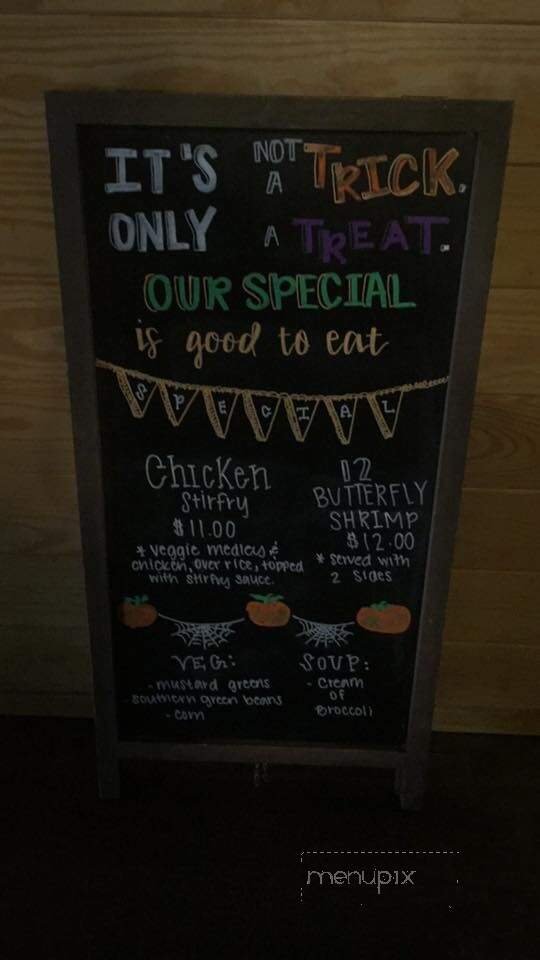 IT'S NOT A TRICK.
ONLY A TREAT.
OUR SPECIAL
is good to eat
SPECIAL
Chicken
Stirfry
$11.00
* Veggie medleys &
chicken, over rice, topped
with stirfry sauce.
12
BUTTERFLY
SHRIMP
$12.00
* served with
2 sides
VEG:
- mustard greens
- southern green beans
- corn
SOUP:
- Cream
of
Broccoli
menupix